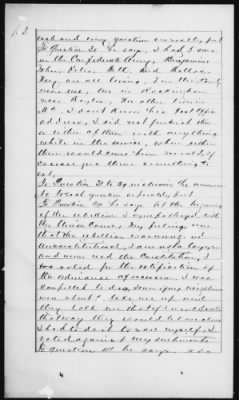 each and every question severally, put
To Question 20 he says, I had 5 sons
in the Confederate Army, Benjamin
John, Peter, Wm, and Wallace
They are all living, in the County
near me, one in Rockingham
near the other lives
at I dont know his post office
address, I did not furnish them
or either of them with anything
while in the service, when either
of them would come home I would of
course give them something to
eat,
To Question 21 to 39 inclusive the answer
to each question separately put
To Question 40 he says At the beginning
of the rebellion I sympathized with
the Union Cause, My feelings were
that the rebellion was wrong and
unconstitutional, I am not a lawyer
and never read the Constitution, I
voted for the ratification of
the ordinance of secession, I was
compelled to do so, some of my neighbors
were about to take me up and
they told me that if I would vote
that way they would let me alone
I had to do it to save myself, I
voted against my sentiments
To question 41 he says,